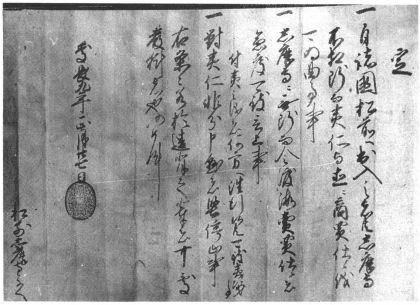 定
一自諸國松前へ出入之者共志摩守
不相断而夷仁与直ニ商買仕候儀
可為曲事事
一志摩守ニ無断而令渡海賣買仕候者
急度可致言上事
付夷之儀者何方へ往行候共可致夷次第事
一對夷仁非分申懸者堅停止事
右条々若於違背之輩者可處
嚴科者也仍如件
慶長九年正月廿七日
松前志摩とのへ